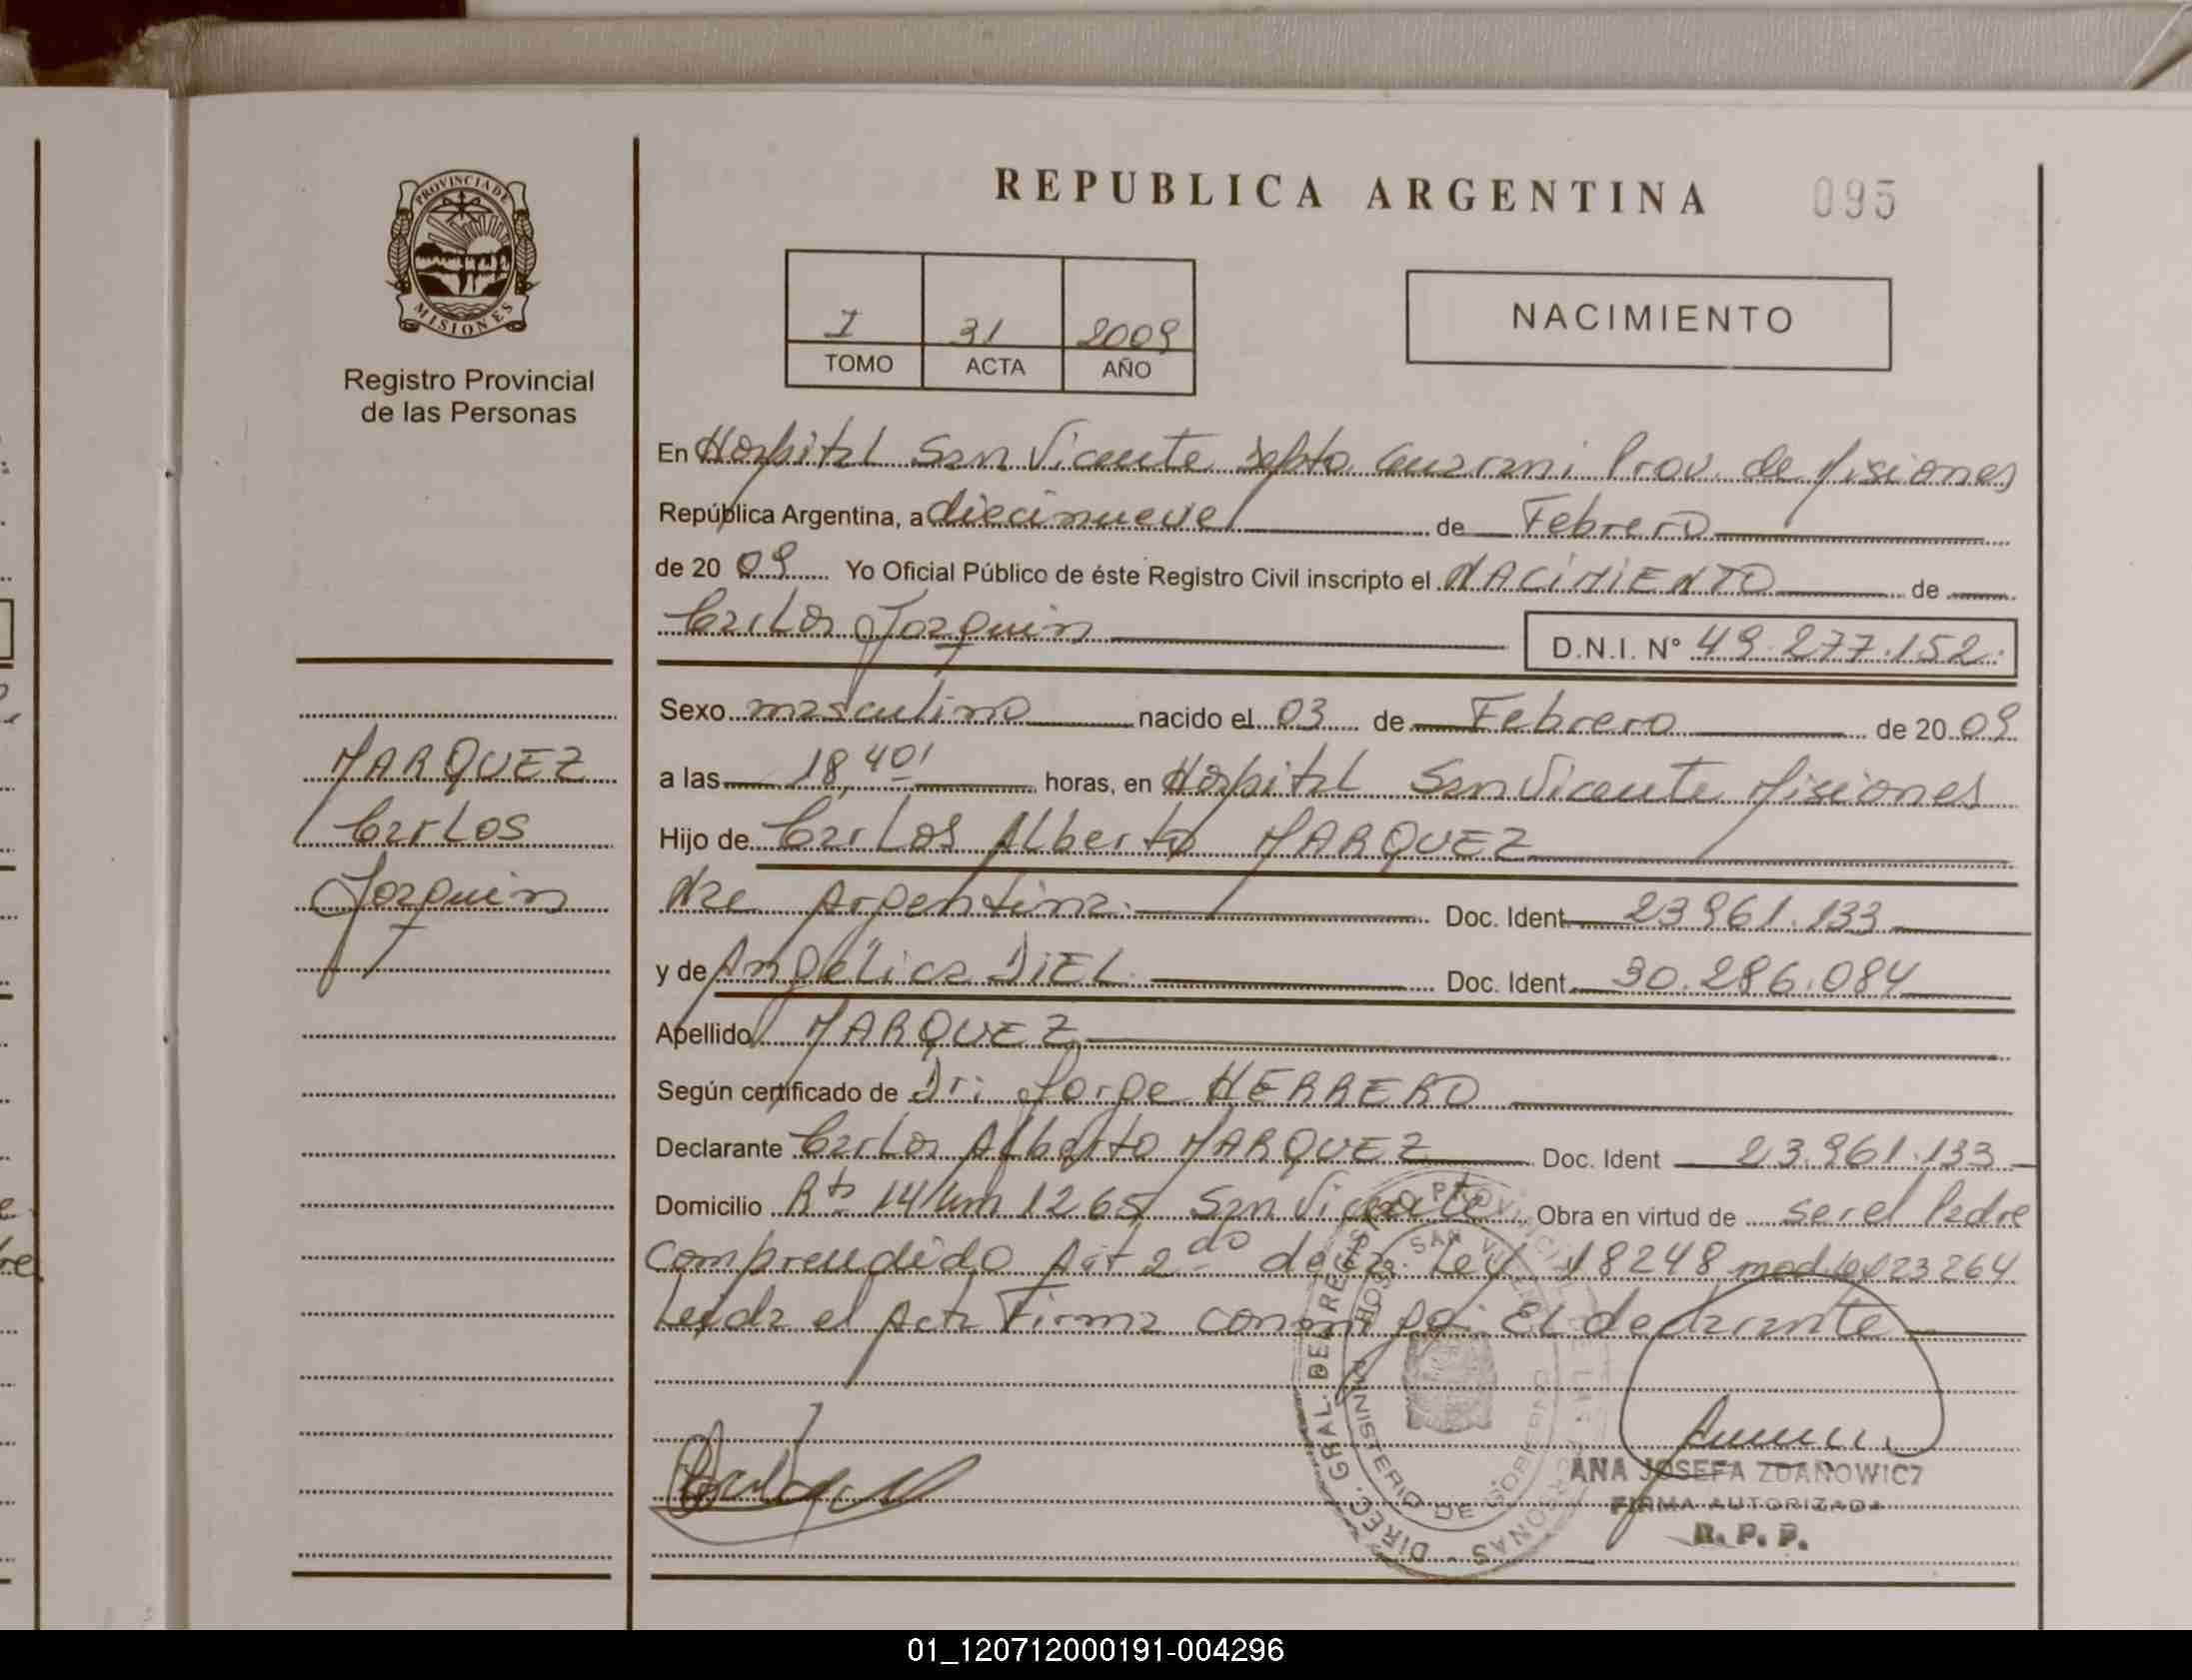 REPUBLICA ARGENTINA 095
PROVINCIA DE
MISIONES
Registro Provincial
de las Personas
I 31 2009
TOMO ACTA AÑO
NACIMIENTO
En Hospital San Vicente Depto Guarani Prov. de Misiones
República Argentina, a diecinueve de Febrero
de 20 09 Yo Oficial Público de éste Registro Civil inscripto el NACIMIENTO de
Carlos Joaquin D.N.I. N° 49.277.152.
Sexo masculino nacido el 03 de Febrero de 20 09
a las 18,40' horas, en Hospital San Vicente Misiones
Hijo de Carlos Alberto MARQUEZ
Nac Argentina. Doc. Ident. 23.961.133
y de Angélica DIEL. Doc. Ident. 30.286.084
Apellido MARQUEZ
Según certificado de Dr: Jorge HERRERO
Declarante Carlos Alberto MARQUEZ Doc. Ident 23.961.133
Domicilio Rta 14 km 1265 San Vicente Obra en virtud de ser el Padre
comprendido Art 2do de la Ley 18248 mod Ley 23264
Leida el Acta Firma conmigo: El declarante
MARQUEZ
Carlos
Joaquin
DIREC. GRAL. DEL REGISTRO PROVINCIAL DE LAS PERSONAS
SAN VICENTE
MINISTERIO DE GOBIERNO
ANA JOSEFA ZDANOWICZ
FIRMA AUTORIZADA
R. P. P.
01_120712000191-004296